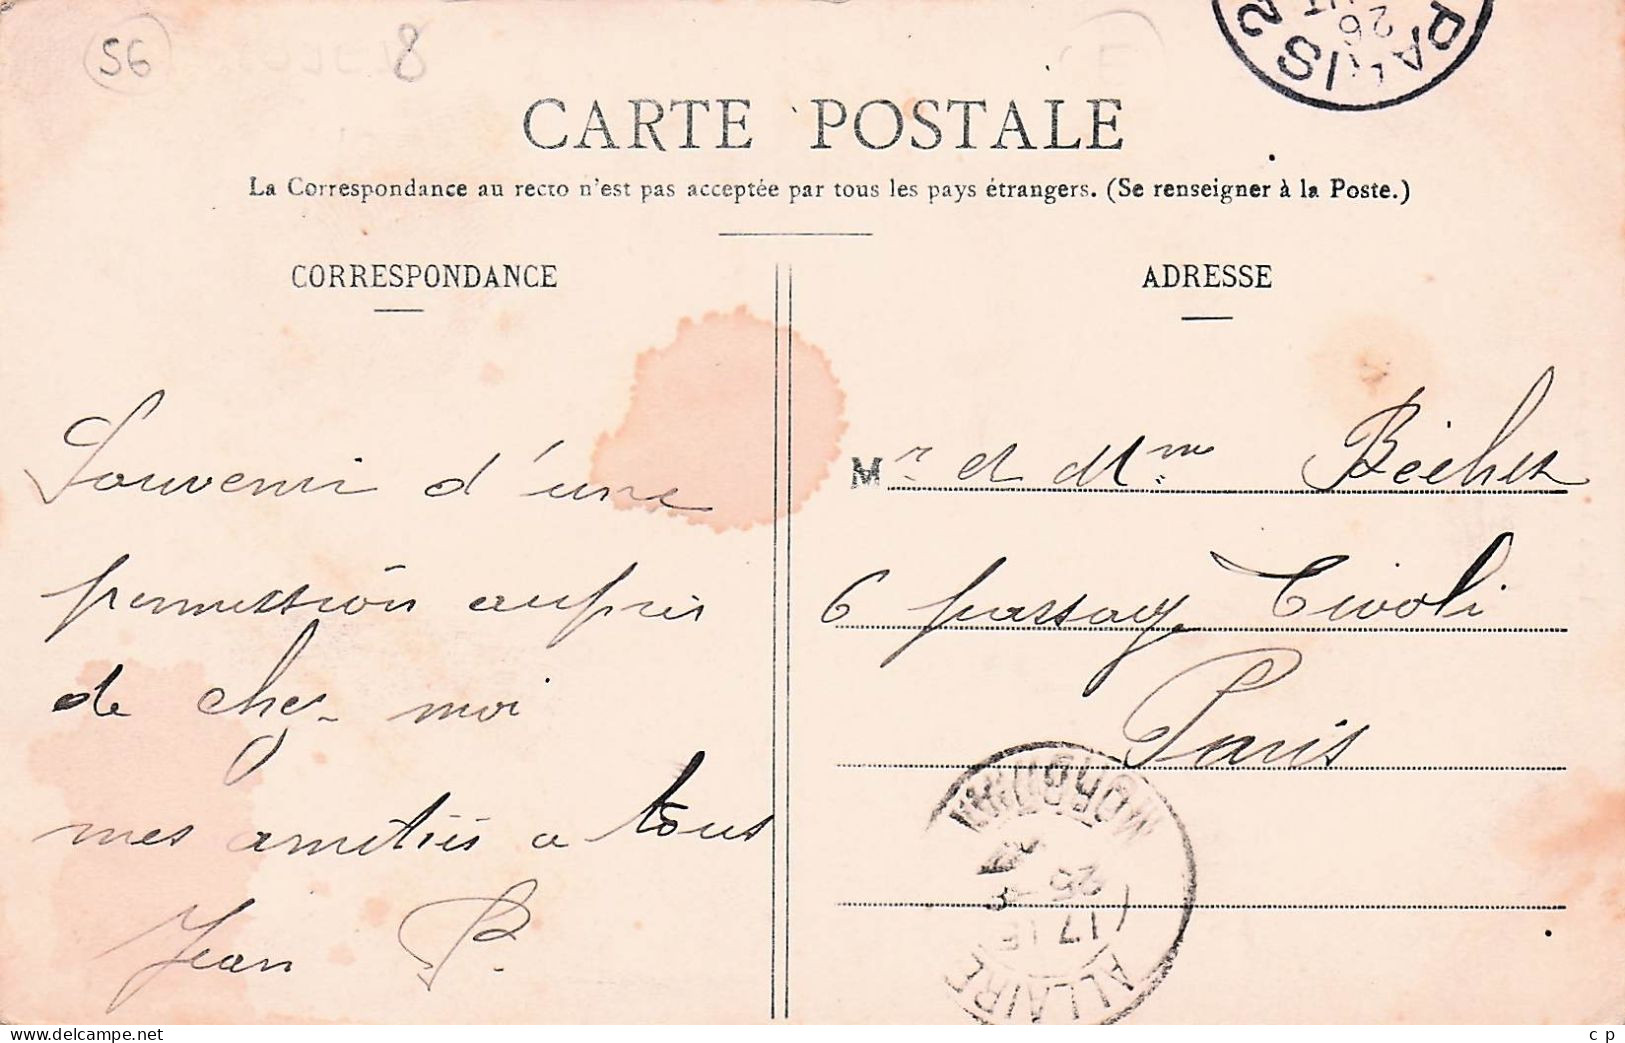 56
8
PARIS 2
26
CARTE POSTALE
La Correspondance au recto n'est pas acceptée par tous les pays étrangers. (Se renseigner à la Poste.)
CORRESPONDANCE
Souvenir d'une
permission auprès
de chez moi
mes amitiés a tous
Jean P.
ADRESSE
Mr et Mme
6 passage Tivoli
Paris
MORBIHAN
25
17
ALLAIRE
c p